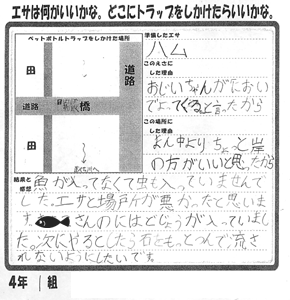 エサは何がいいかな。どこにトラップをしかけたらいいかな。
ペットボトルトラップをしかけた場所
田
道路
道路
橋
田
準備したエサ
ハム
このえさに
した理由
おじいちゃんがにおい
でよってくると言ったから
この場所に
した理由
まん中よりちょっと岸
の方がいいと思ったから
結果と
感想
魚が入ってなくて虫も入っていませんで
した。エサと場戸所が悪かったと思いま
す。
さんのにはどじょうが入っていまし
た。次にやるとしたら石をもっとつんで流さ
れないようにしたいです。
4年 1組